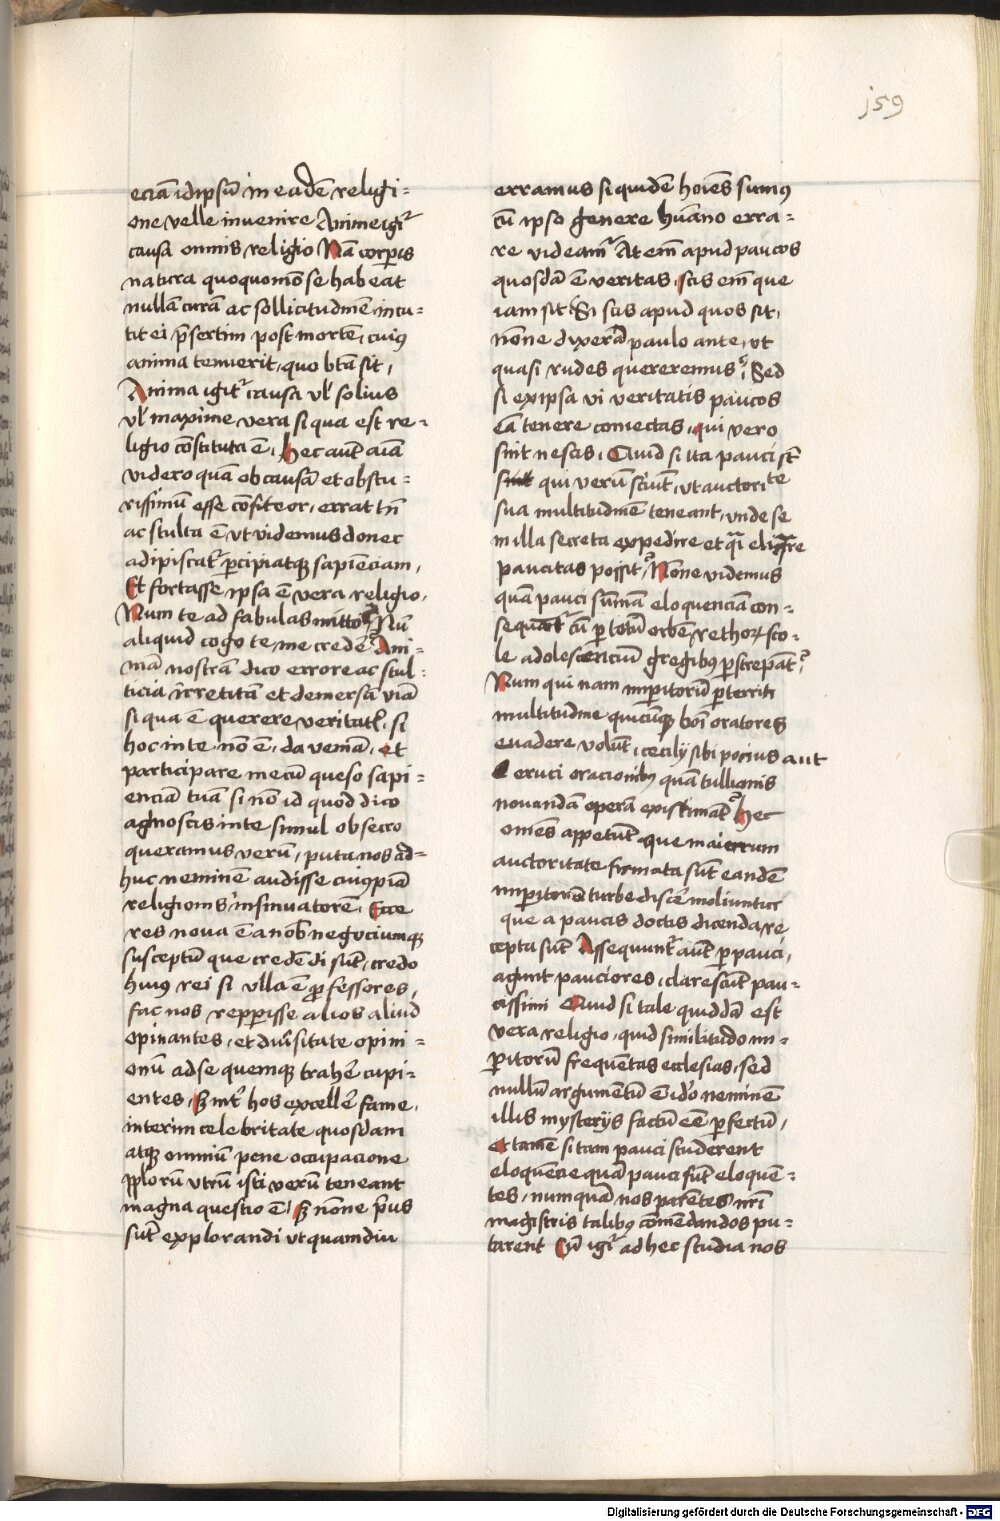 j59
eciā idipsū in eadē religi=
one velle invenire Anime igr̄
causa omnis religio Nā corporis
natura quoquomō se habeat
nullā curā ac sollicitudinē incu=
tit ei p̄sertim post mortē, cuiꝰ
anima tenuerit, quo bt̄a sit,
Anima igit̄ causa vl̄ solius
vl̄ maxime vera si qua est re=
ligio cōstituta ē, hec aūt aīa
videro quā ob causā et obscu=
rissimū esse cōfiteor, errat tn̄
ac stulta ē ut videmus donec
adipiscat̄ ꝑcipiatqꝫ sapienciam,
Et fortasse ipsa ē vera religio,
Num te ad fabulas mitto? Nū
aliquid cogo te me credē? Ani=
mā nostrā dico errore ac stul=
ticia irretitā et demersā viā
si qua ē querere veritatis, si
hoc in te nō ē, da veniā, et
participare mecū queso sapi=
enciā tuā si nō id quod dico
agnoscis in te simul obsecro
queramus verū, puta nos ad=
huc neminē audisse cuiuspiā
religionis insinuatorē, Ecce
res nova ē a nobis negociumqꝫ
susceptū que credēdi sūt, credo
huiꝰ rei si ulla ē ꝓfessores,
fac nos repperisse alios aliud
opinantes, et diu̓sitate opini=
onū ad se quemqꝫ trahē cupi=
entes, Sꝫ int̓ hos excellē fame,
interim celebritate quosdam
atqꝫ omniū pene occupacione
pplorū utrū isti verū teneant
magna questio ē, Sꝫ nōne pius
sūt explorandi ut quamdiu
erramus siquidē hoīes sumꝰ
cū ipso genere hūano erra=
re videamr̄ At em̄ apud paucos
quosdā ē veritas, scis em̄ que
iam sit si scis apud quos sit,
nōne dixerā paulo ante, ut
quasi rudes quereremus? Sed
si ex ipsa vi veritatis paucos
eā tenere coniectas, qui vero
sint nescis, Quid si ita pauci st̄
qui verū sciūt, ut auctorite
sua multitudinē teneant, unde se
in illa secreta expedire et qͣi eliqͣre
paucitas possit? Nōne videmus
quā pauci sūmā eloquenciā con=
sequant̄ cū ꝑ totū orbē rethorꝝ sco=
le adolescenciū gregibꝰ ꝑstrepāt?
Num qui nam imꝑitorū ꝑterriti
multitudine quicūqꝫ boni oratores
evadere volūt, cecilij sibi pocius aut
eruci oracionibꝰ quā tullianis
novandā operā existimāt? hec
omēs appetūt que maiorum
auctoritate firmata sūt eandē
imꝑitorū turbe discē moliuntur
que a paucis doctis dicenda re
cepta sūt Assequunt̄ aūt ꝑpauci,
agunt pauciores, clarescūt pau=
cissimi Quid si tale quiddā est
vera religio, quid si multitudo im=
ꝑitorū frequētas ecclesias, sed
nullū argumentū ē ido̓ neminē
illis mysterijs factū eē ꝑfectū,
et tamē si tam pauci studerent
eloquēcie quā pauci sūt eloquē=
tes, numquā nos parētes nr̄i
magistris talibꝰ cōmēdandos pu=
tarent Cū igr̄ ad hec studia nos
Digitalisierung gefördert durch die Deutsche Forschungsgemeinschaft - DFG